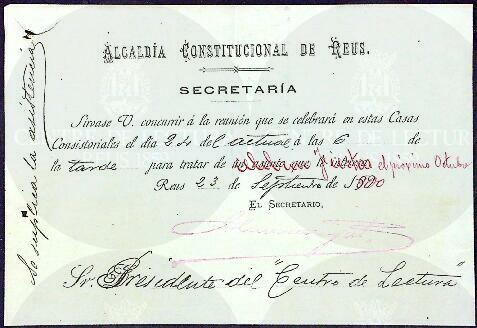 ALCALDÍA CONSTITUCIONAL DE REUS.
SECRETARÍA
Sírvase V. concurrir á la reunión que se celebrará en estas Casas
Consistoriales el día 24 del actual á las 6 de
la tarde para tratar de fiestas el próximo Octubre
Reus 23 de Septiembre de 1890
EL SECRETARIO,
Sr. Presidente del "Centro de Lectura"
Se suplica la asistencia